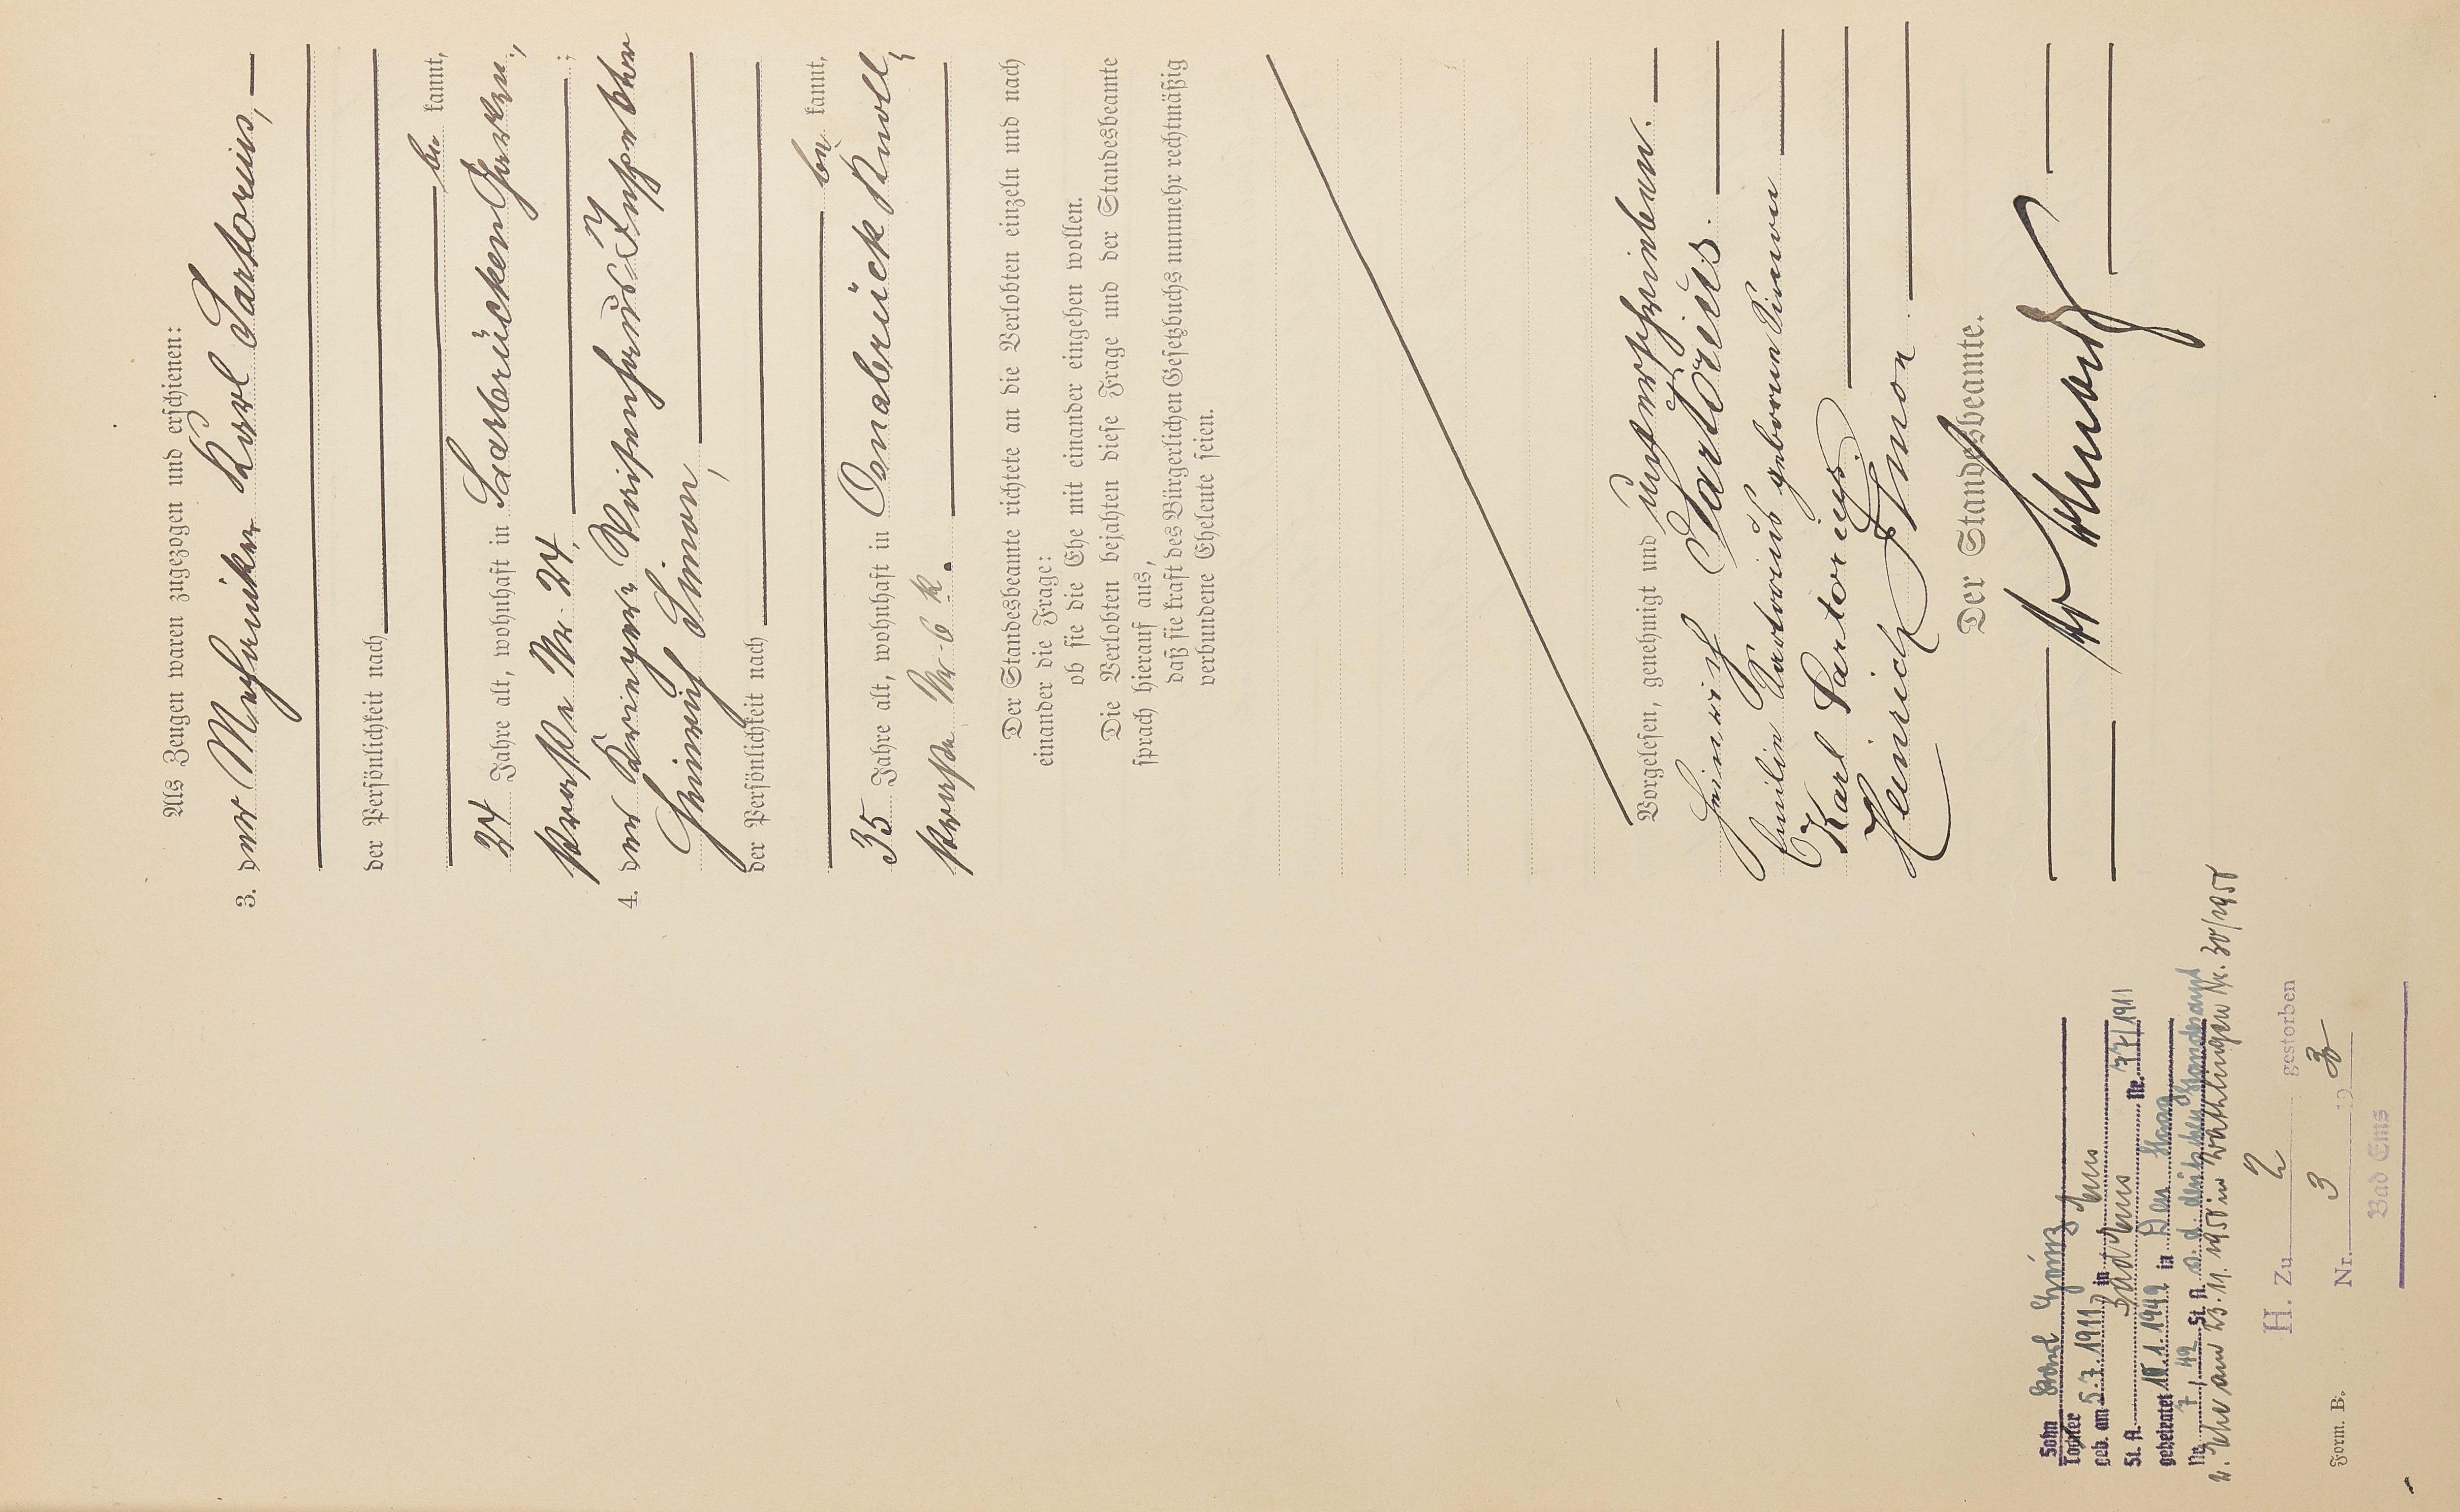 Als Zeugen waren zugezogen und erschienen:
3. der Mechaniker Karl Sartorius, —
der Persönlichkeit nach
be kannt,
24 Jahre alt, wohnhaft in Saarbrücken
straße Nr. 24 ;
4. der
Heinrich Simon,
der Persönlichkeit nach
be kannt,
35 Jahre alt, wohnhaft in Osnabrück Knoll,
straße Nr. 6
Der Standesbeamte richtete an die Verlobten einzeln und nach
einander die Frage:
ob sie die Ehe mit einander eingehen wollen.
Die Verlobten bejahten diese Frage und der Standesbeamte
sprach hierauf aus,
daß sie kraft des Bürgerlichen Gesetzbuchs nunmehr rechtmäßig
verbundene Eheleute seien.
Vorgelesen, genehmigt und unterschrieben. —
Heinrich Sartorius.
Emilie Sartorius geborene Simon
Karl Sartorius.
Heinrich Simon
Der Standesbeamte.
Sohn Karl Heinz
Tochter
geb. am 5.7.1911 in Bad Ems
St. A. Bad Ems Nr. 77/1911
geheiratet 1949 in Den Haag
Nr. 7/49 St. A.
2. Ehe am 23.11.1958 in Wathlingen Nr. 30/1958
H. Zu 2 gestorben
Nr. 3 19
Bad Ems
Form. B.